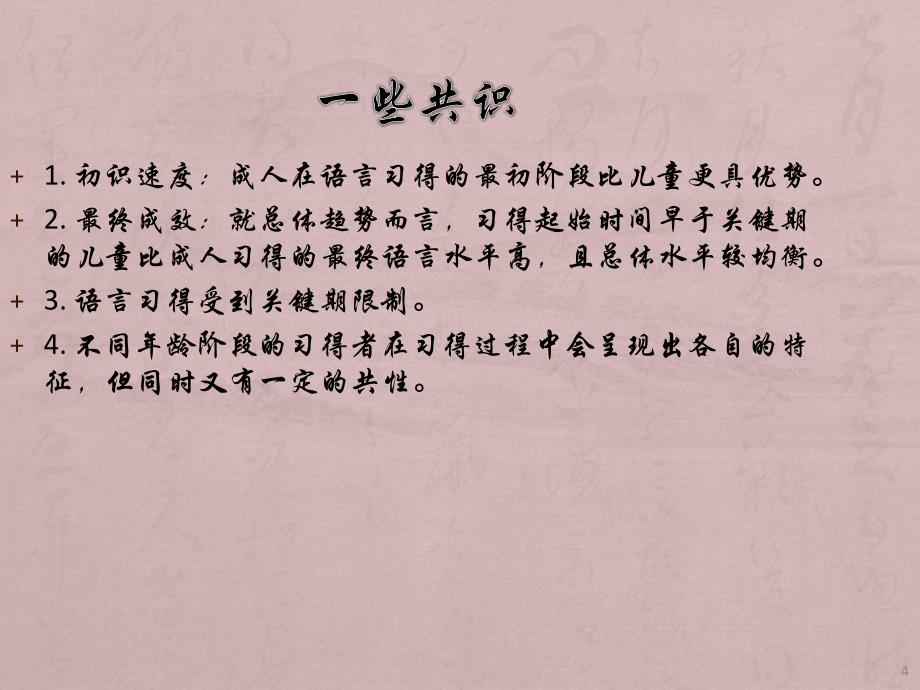 一些共识
+ 1. 初识速度：成人在语言习得的最初阶段比儿童更具优势。
+ 2. 最终成效：就总体趋势而言，习得起始时间早于关键期
的儿童比成人习得的最终语言水平高，且总体水平较均衡。
+ 3. 语言习得受到关键期限制。
+ 4. 不同年龄阶段的习得者在习得过程中会呈现出各自的特
征，但同时又有一定的共性。
4